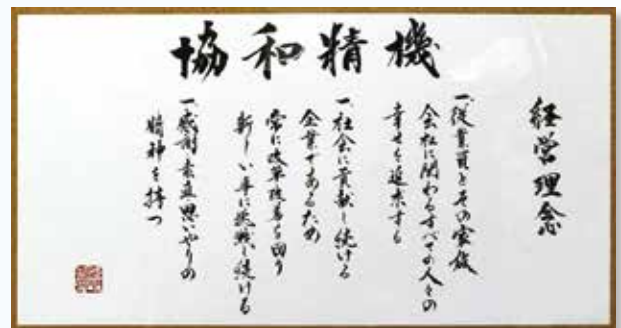 協和精機
経営理念
一、従業員とその家族
会社に関わるすべての人々の
幸せを追求する
一、社会に貢献し続ける
企業であるため
常に改革改善を図り
新しい事に挑戦し続ける
一、感謝素直思いやりの
精神を持つ